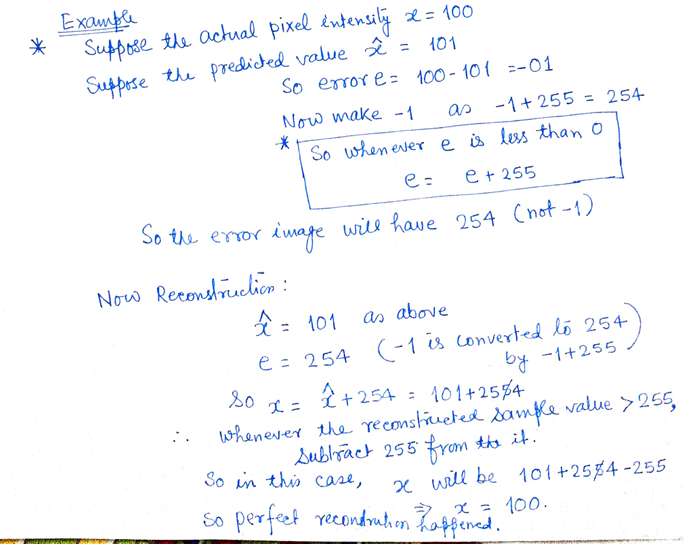 Example
* Suppose the actual pixel intensity x = 100
Suppose the predicted value x̂ = 101
So error e = 100 - 101 = -01
Now make -1 as -1 + 255 = 254
* So whenever e is less than 0
e = e + 255
So the error image will have 254 (not -1)
Now Reconstruction :
x̂ = 101 as above
e = 254 (-1 is converted to 254
by -1+255)
So x = x̂ + 254 = 101 + 254
∴ whenever the reconstructed sample value > 255,
subtract 255 from it.
So in this case, x will be 101 + 254 - 255
⇒ x = 100.
So perfect recondruhion happened.